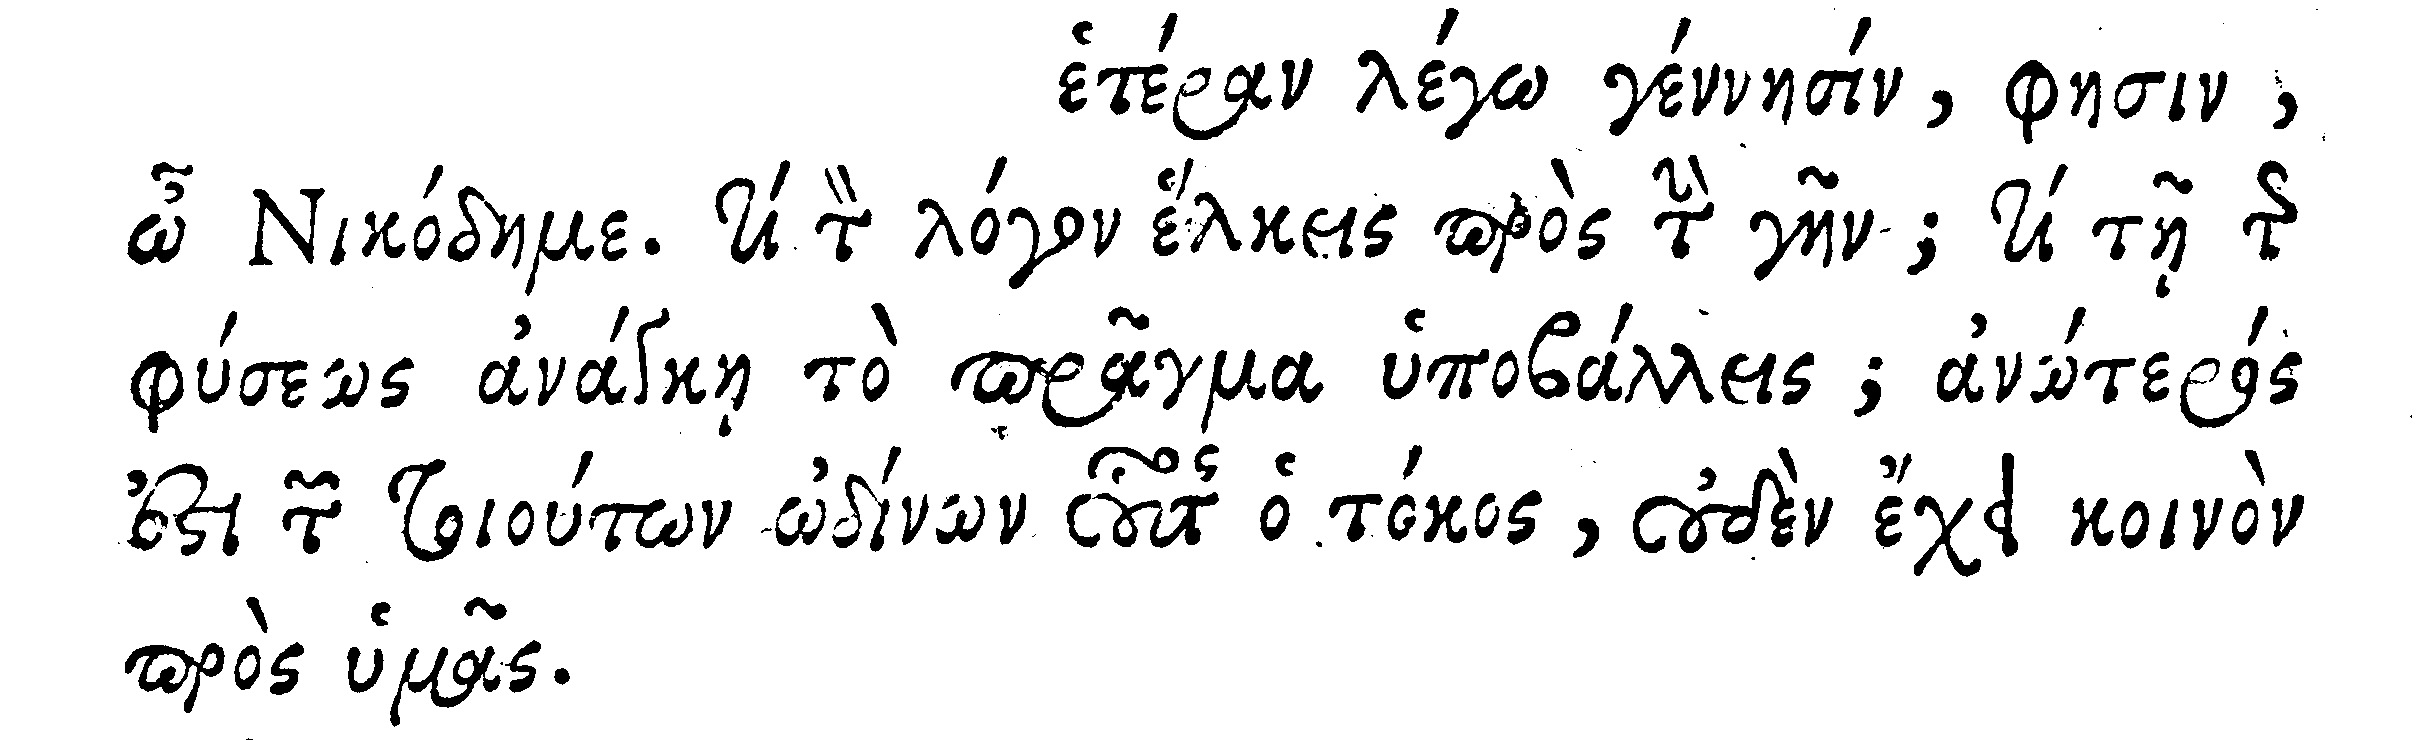 ἑτέραν λέγω γέννησίν, φησιν,
ὦ Νικόδημε. τί τὸν λόγον ἕλκεις πρὸς τὴν γῆν; τί τῇ τῆς
φύσεως ἀνάγκῃ τὸ πρᾶγμα ὑποβάλλεις; ἀνώτερός
ἐστι τῶν τοιούτων ὠδίνων οὗτος ὁ τόκος, οὐδὲν ἔχει κοινὸν
πρὸς ὑμᾶς.